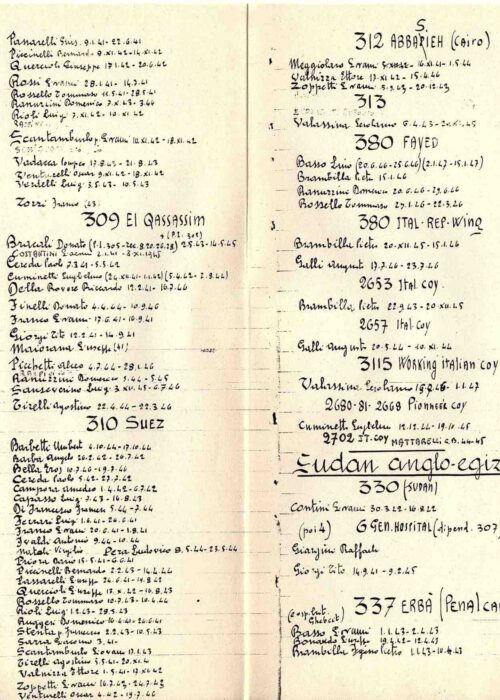 Passarelli Gius. 9.1.41 - 22.6.41
Piccinelli Bernardo 8.XI.42-14.XI.42
Quercioli Giuseppe 17.1.42 - 20.6.42
Rossi Ervami 28.1.41 - 14.7.41
Rossello Tommaso 11.5.41 - 28.5.41
Ranuzzini Domenico 7.X.43 - 3.44
Rioli Luigi 7.XI.42 - 10.XI.42
Scantamburlo 10.XI.42 - 18.XI.42
Vadacca 17.8.43 - 21.8.43
Venturelli Oscar 9.XI.42 - 18.XI.42
Verdelli Luigi 3.5.43 - 10.5.43
Zorzi Franco (43)
309 El QASSASIM
Bracali Donato 2.5.43 - 14.5.45
Cereda Paolo 7.3.41 - 5.5.42
Cuminetti Guglielmo (24.XI.41-11.42) (5.4.42 - 2.9.44)
Della Rovere Riccardo 12.2.41 - 16.7.46
Finelli Donato 4.4.44 - 10.9.46
Franco 17.6.41 - 16.9.41
Giorgi Tito 12.2.41 - 14.9.41
Maiorana Giuseppe (41)
Picchetti Alceo 4.7.44 - 28.1.46
Ranuzzini Domenico 5.44 - 5.45
Sanseverino Luigi 3.XII.45 - 6.7.46
Tirelli Agostino 22.4.44 - 22.3.46
310 SUEZ
Barbetti Umbert 6.10.44 - 17.10.44
Barba Angelo 26.2.42 - 26.7.42
Bella 10.7.46 - 19.7.46
Cereda Paolo 5.42 - 27.7.42
Campora Amedeo 1.4.42 - 6.7.42
Capasso Luigi 7.43 - 16.8.43
Di Francesco 5.44 - 7.44
Ferrari Luigi 1.6.41 - 20.6.41
Franco 20.6.41 - 1.8.41
Ivaldi Antonio 9.44 - 10.44
Natali Virgilio Pera Ludovico 8.5.44 - 23.5.44
Priora Dario 15.5.41 - 6.41
Piccinelli Bernardo 2.2.43 - 14.2.44
Passarelli 24.6.41 - 16.8.42
Quercioli 17.X.42 - 16.8.43
Rossello Tommaso 10.7.43 - 10.4.44
Rioli Luigi 1.2.43 - 28.5.43
Ruggeri Domenico 16.4.41 - 26.6.41
Stenta 2.2.43 - 10.5.43
Sarra Giacomo 3.41
Scantamburlo 17.1.43
Tirelli Agostino 5.5.41 - 20.XI.4
Valnizza Ettore 1.5.41 - 17.XI.42
Zoppetti 16.7.42 - 24.7.42
Venturelli Oscar 4.42 - 19.7.46
312 ABBASSIEH (Cairo)
Meggiolaro 16.XI.41 - 1.5.44
Valnizza Ettore 17.XI.42 - 15.4.46
Zoppetti 5.5.43 - 20.12.43
313
Valassina 6.4.43 - 20.XII.45
380 FAYED
Basso Luio (20.6.46 - 25.6.46) (2.1.47 - 15.1.47)
Brambilla Pietro 15.1.46
Ranuzzini Domenico 20.6.46 - 29.6.46
Rossello Tommaso 29.1.46 - 22.3.46
380 ITAL-REP-WING
Brambilla Pietro 20.XII.45 - 15.1.46
Galli August 17.7.46 - 23.7.46
2653 Ital coy.
Brambilla Pietro 22.9.43 - 20.XII.45
2657 Ital Coy
Galli Augusto 20.5.44 - 10.XI.44
3115 WORKING ITALIAN COY
Valassina 1.1.47
2680-81-2668 Pioneer Coy
Cuminetti Guglielmo 12.12.44 - 19.10.45
2702 IT.COY MATTARELLI G.B. 44-45
Sudan anglo-egiz
330 (SUDAN)
Contini 30.3.42 - 16.8.42
(poi 4) 6 GEN. HOSPITAL (dipend. 307)
Giargini Raffaele
Giorgi Tito 14.9.41 - 9.2.45
337 ERBÀ (PENAL CA
Basso 1.1.43 - 2.4.43
Bonando 19.4.42 - 12.4.43
Brambilla 1.1.43 - 10.4.43